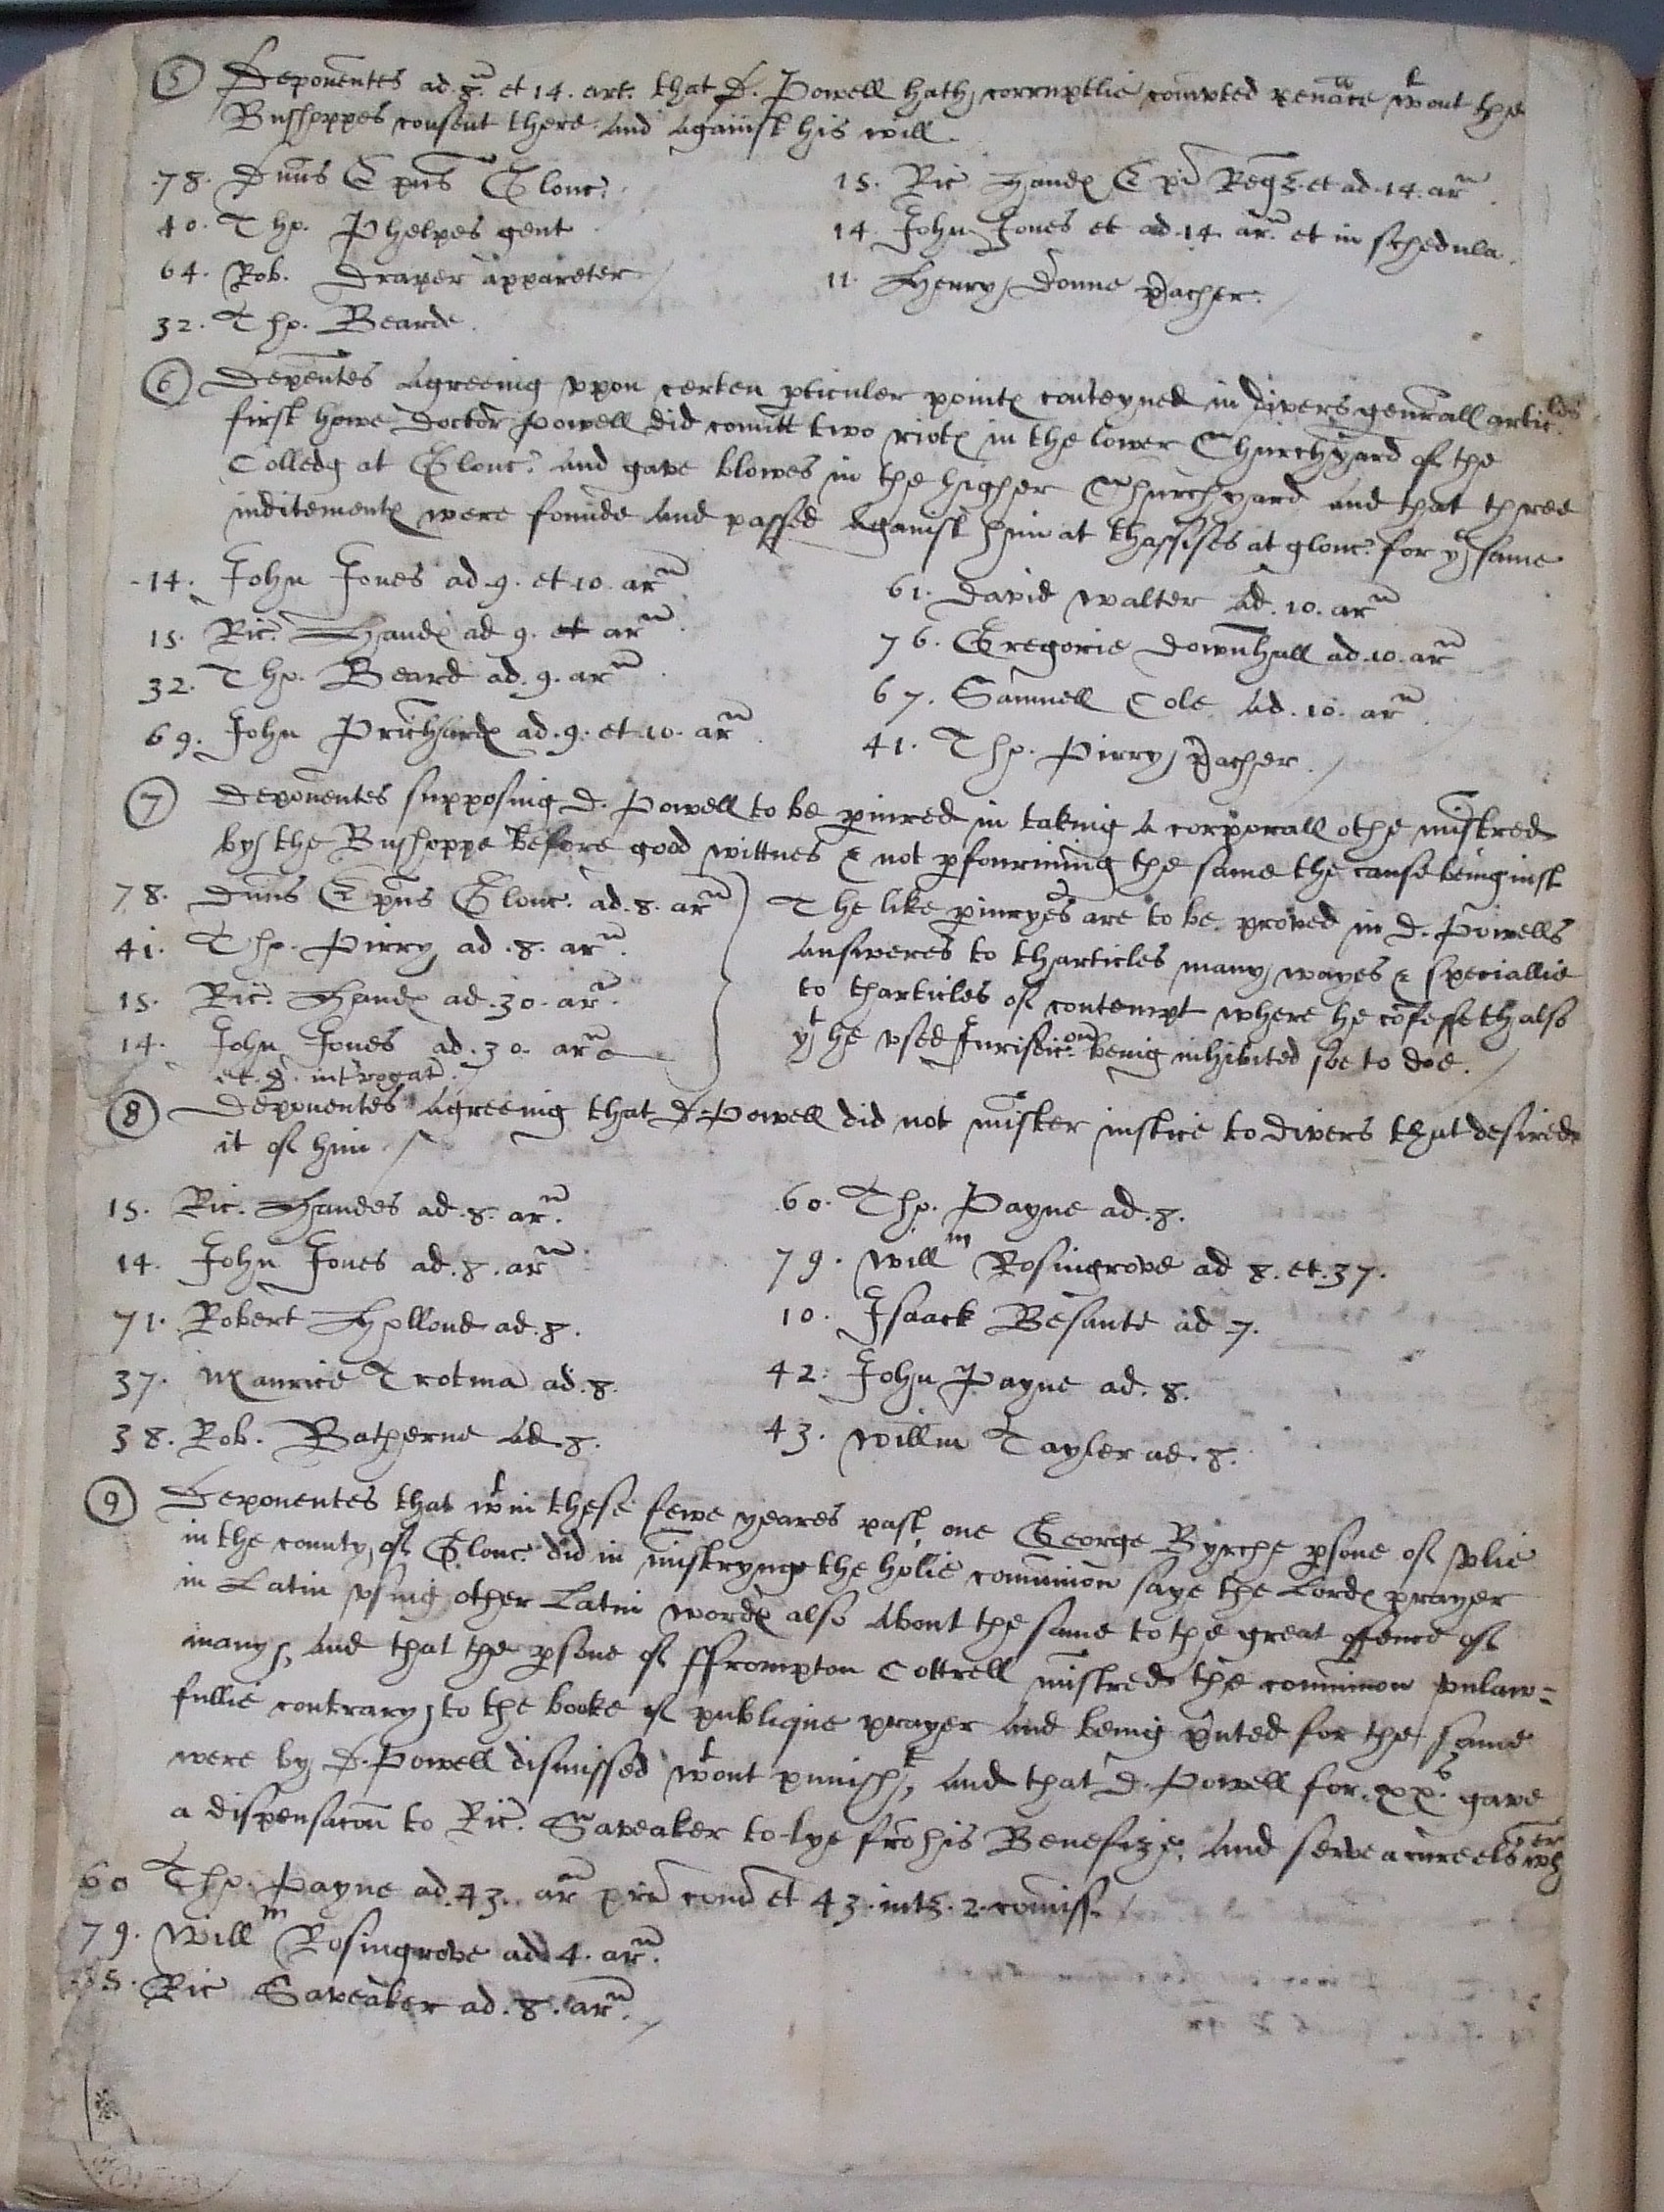 5 Deponentes ad .8.m et 14. art. that D. Powell hath corruptlie comuted penāce wtout the
Busshoppes consent there And against his will
.78. Dnus Epūs Glouc.
40. Tho. Phelpes gent
64. Rob. Draper appareter
32. Tho. Bearde.
15. Ric Handꝭ Epi Regr. et ad .14. arm.
14. John Jones et ad .14. arm. et in schedula.
11. Henry Donne pacher.
6 Depentes Agreeing vpon certen pticuler pointꝭ conteyned in divers generall articles
first howe Doctor Powell did comitt two riotꝭ in the lower Churchyard of the
Colledg at Glouc. And gave blowes in the higher Churchyard and that three
inditementꝭ were founde And passed Against him at thassises at glouc. for ye same
14. John Jones ad .9. et 10. arm
15. Ric. Handꝭ ad 9. et arm.
32. Tho. Beard ad .9. arm.
69. John Prichardꝭ ad .9. et 10. arm.
61. David Walter Ad .10. arm
76. Gregorie Downhall ad .10. arm
67. Samuell Cole Ad .10. arm.
41. Tho. Pirry pacher.
7 Deponentes supposing D. Powell to be piured in taking A corporall othe mistred
by the Busshoppe before good wittnes & not pfourming the same the cause being iust
78. Dnus Epūs Glouc. ad .8. arm
41. Tho. Pirry ad .8. arm.
15. Ric. Handꝭ ad .30. arm.
14. John Jones ad .30. arm
et .8. introgat.
The like piuryes are to be proved in D. Powells
Answeres to tharticles many wayes & speciallie
to tharticles of contempt where he cōfesseth also
yt he vsed Jurisdiccon being inhibited soe to doe.
8 Deponentes Agreeing that D. Powell did not mister iustice to divers that desired
it of him
15. Ric. Handes ad .8. arm.
14. John Jones ad .8. arm.
71. Robert Hollond ad .8.
37. Maurice Trotmā ad .8.
38. Rob. Batherne Ad .8.
60. Tho. Payne ad .8.
79. Willm Rosingrove ad 8. et .37.
10. Isaack Besante ad .7.
42. John Payne ad .8.
43. Willm Tayler ad .8.
9 Deponentes that wtin these fewe yeares past one George Byrche psone of
in the county of Glouc. did in mistrynge the holie comunion saye the Lordꝭ prayer
in Latin vsing other Latin wordꝭ also About the same to the great offence of
many, And that the psone of ffrompton Cottrell mistred the comunion vnlaw=
fullie contrary to the booke of publique prayer And being pnted for the same
were by D. Powell dismissed wtout punisht, And that D. Powell for .xxs. gave
a dispensacon to Ric. Saveaker to lye frō his Benefize, And serve a cure els wher
60 Tho. Payne ad .43. arm et 43. int. 2. comiss.
79. Willm Rosingrove ad 4. arm.
Ric Saveaker ad .8. arm.